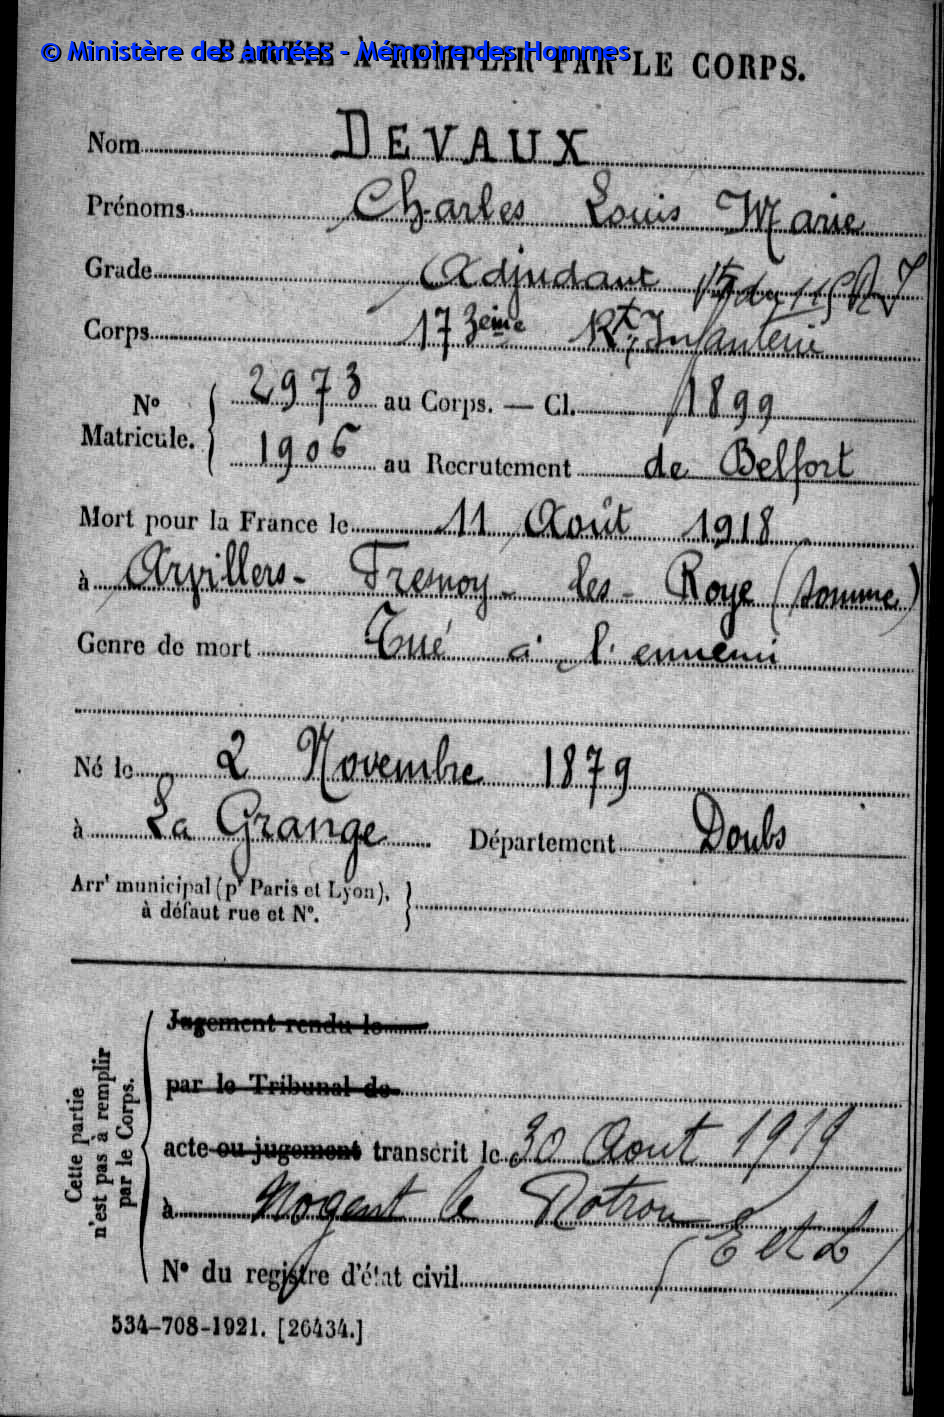 © Ministère des armées - Mémoire des Hommes
PARTIE À REMPLIR PAR LE CORPS.
Nom DEVAUX
Prénoms Charles Louis Marie
Grade Adjudant
Corps 173eme Rt Infanterie
No Matricule. { 2973 au Corps. — Cl. 1899
1906 au Recrutement de Belfort
Mort pour la France le 11 Août 1918
à Arvillers - Fresnoy - les - Roye (Somme)
Genre de mort Tué à l'ennemi
Né le 2 Novembre 1879
à La Grange Département Doubs
Arrt municipal (pr Paris et Lyon),
à défaut rue et No. }
Cette partie n'est pas à remplir par le Corps.
Jugement rendu le
par le Tribunal de
acte ou jugement transcrit le 30 Aout 1919
à Nogent le Rotrou
(E et L)
No du registre d'état civil
534-708-1921. [26434.]